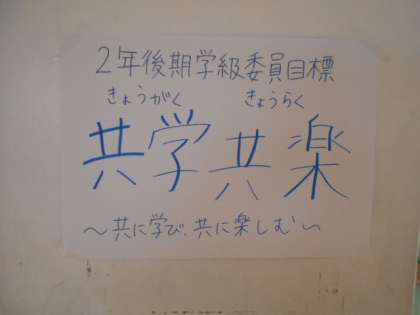 2年後期学級委員目標
きょうがく きょうらく
共学共楽
～共に学び、共に楽しむ～